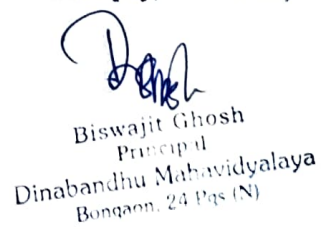 Biswajit Ghosh
Principal
Dinabandhu Mahavidyalaya
Bongaon, 24 Pgs (N)